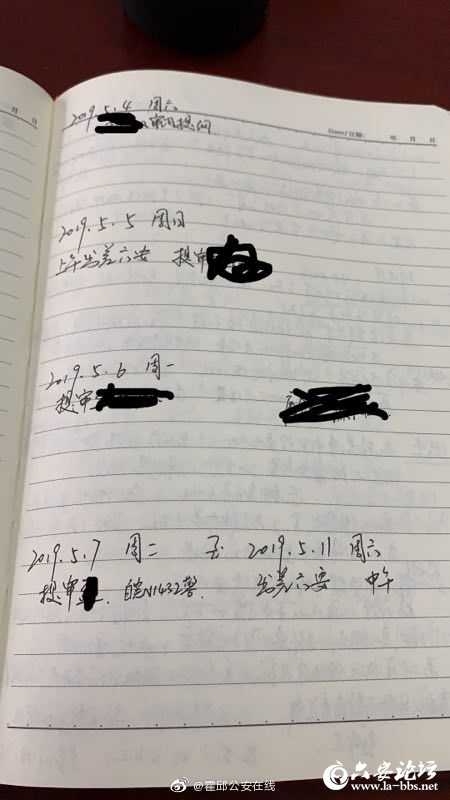 2019.5.4 周六
审讯提纲
2019.5.5 周日
上午出差六安 提审
2019.5.6 周一
提审
2019.5.7 周二 至 2019.5.11 周六
提审 皖N1432警. 出差六安 中午
@霍邱公安在线
六安论坛
www.la-bbs.net